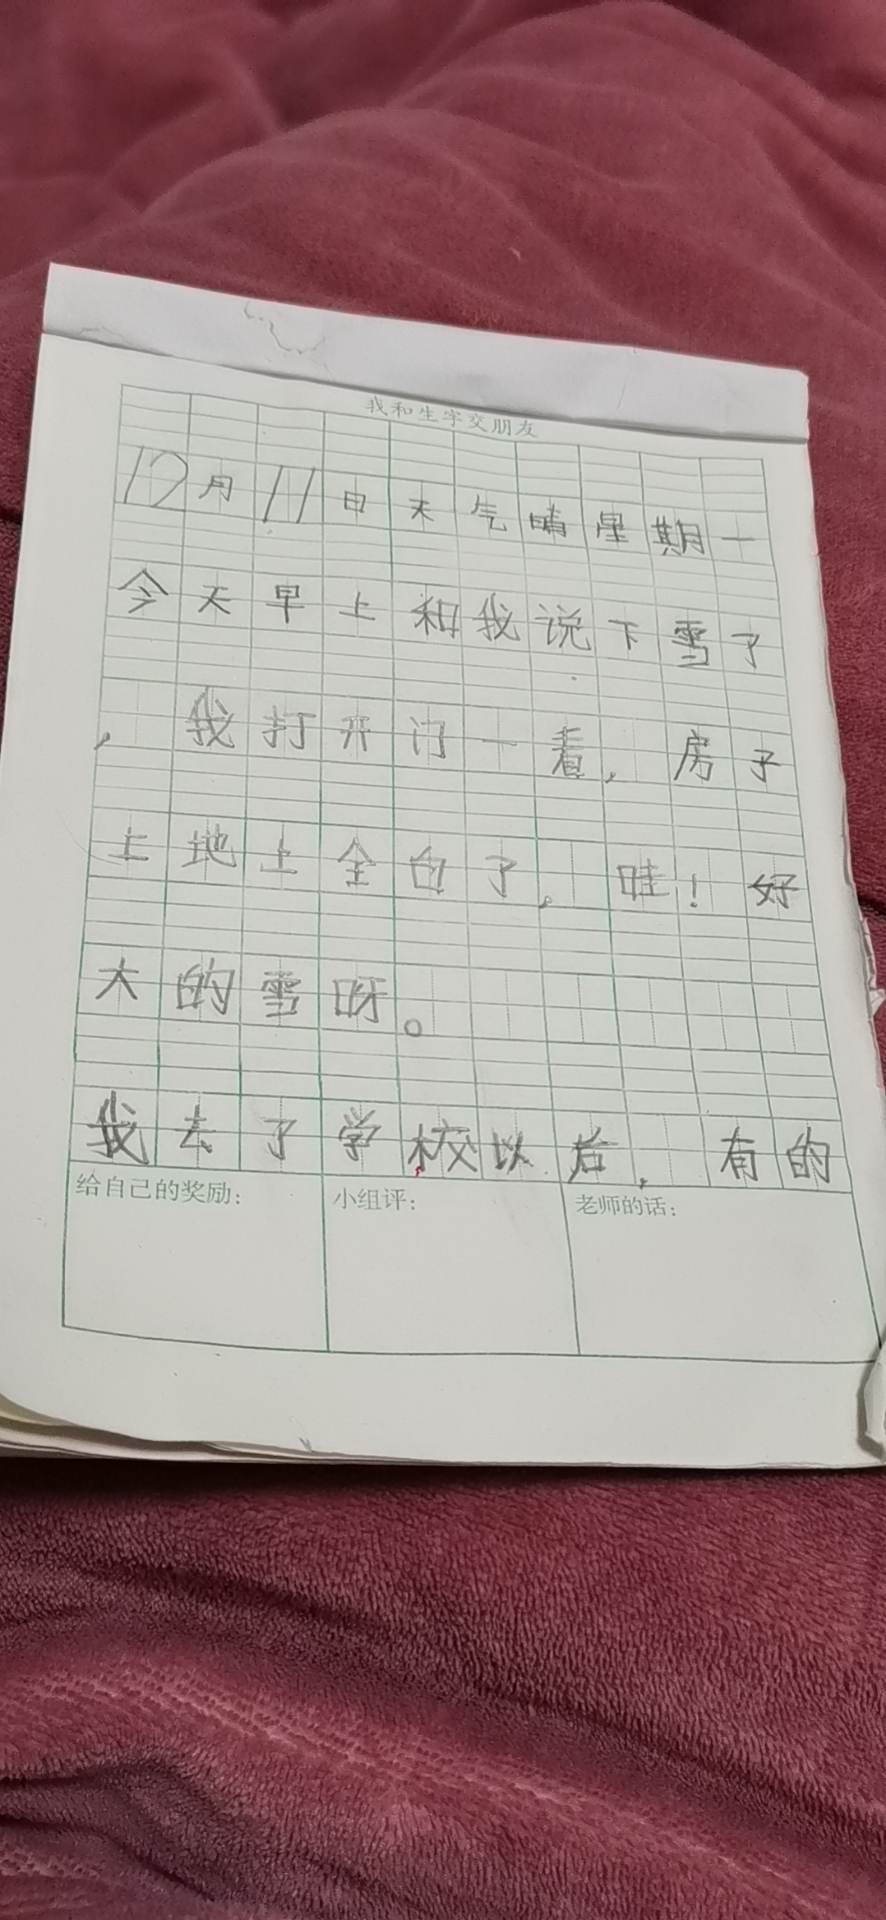 我和生字交朋友
12月11日天气晴星期一
今天早上和我说下雪了
，我打开门一看，房子
上地上全白了，哇！好
大的雪呀。
我去了学校以后，有的
给自己的奖励：
小组评：
老师的话：